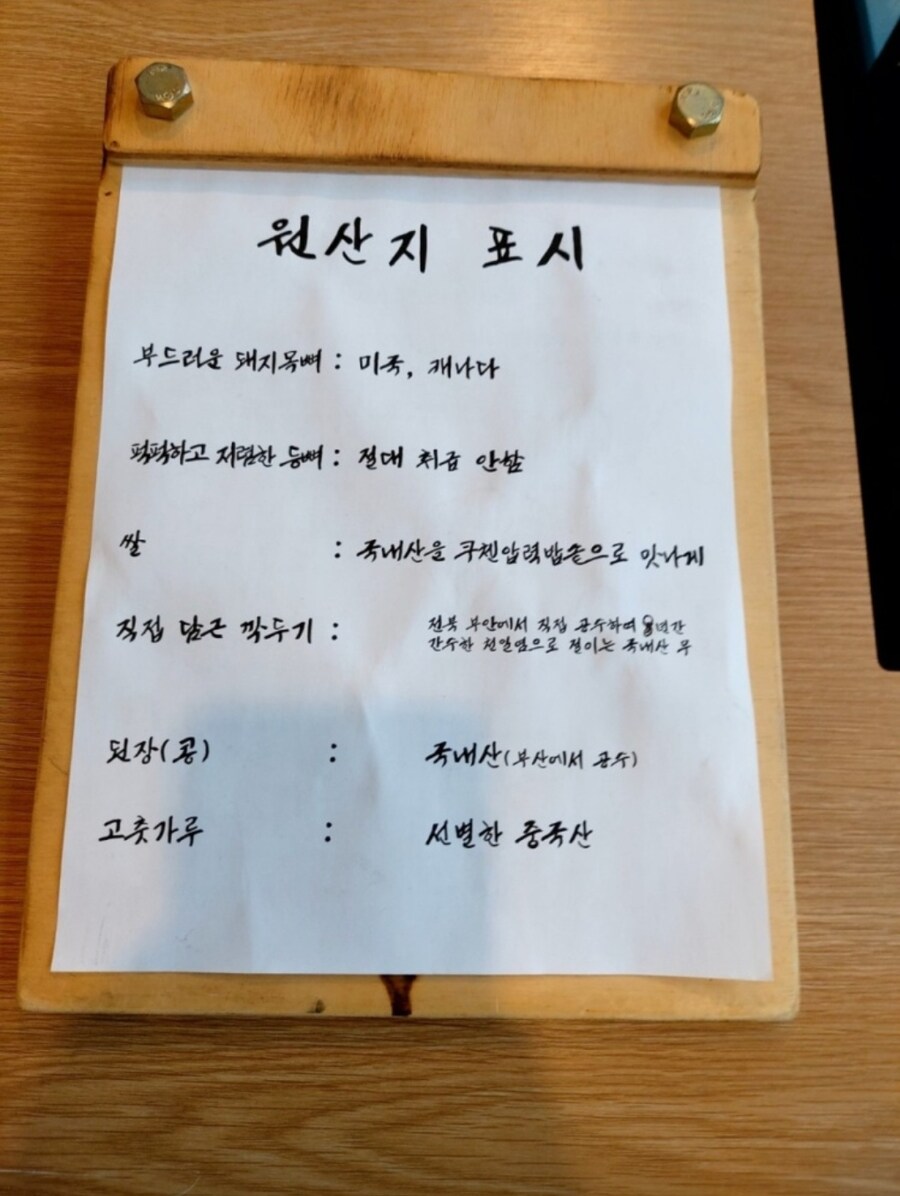 원산지 표시
부드러운 돼지목뼈 : 미국, 캐나다
퍽퍽하고 저렴한 등뼈 : 절대 취급 안함
쌀 : 국내산을 쿠첸압력밥솥으로 맛나게
직접 담근 깍두기 :
전북 부안에서 직접 공수하여 년간
간수한 천일염으로 절이는 국내산 무
된장(콩) : 국내산(부산에서 공수)
고춧가루 : 선별한 중국산